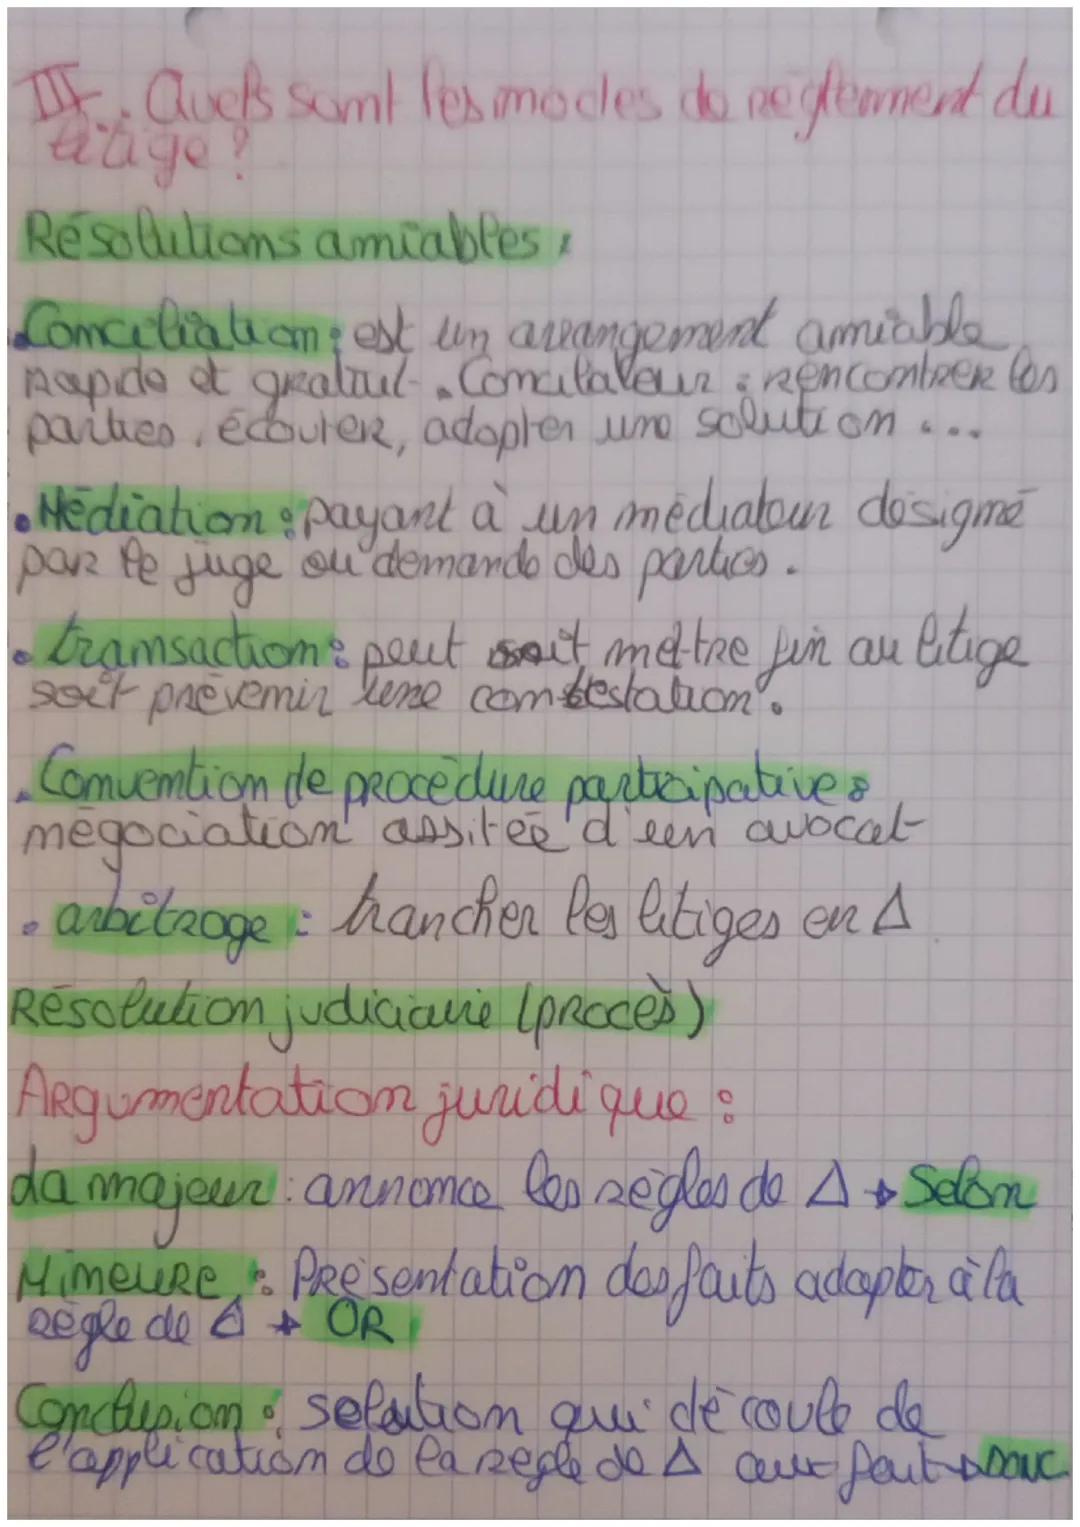 III. Quels sont les modes de règlement du
litige ?
Résolutions amiables :
• Conciliation : est un arrangement amiable
rapide et gratuit. Concilateur : rencontrer les
parties, écouter, adopter une solution ...
• Médiation : payant à un médiateur désigné
par le juge ou demande des parties.
• transaction : peut soit mettre fin au litige
soit prévenir une contestation.
• Convention de procédure participative :
négociation assitée d'un avocat
• arbitrage : trancher les litiges en Δ
Résolution judiciaire (procès)
Argumentation juridique :
La majeur : annonce les règles de Δ → Selon
Mineure : Présentation des faits adapter à la
règle de Δ → OR
Conclusion : solution qui découle de
l'application de la règle de Δ aux fait → DONC